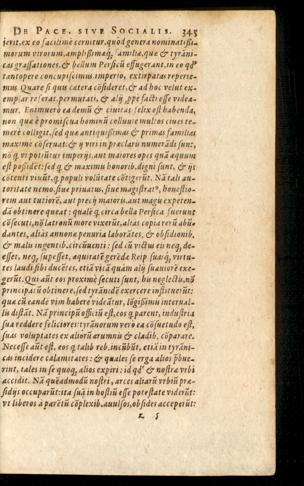 DE PACE, SIVE SOCIALIS. 345
ierit, ex eo facilimè cernitur, quòd genera nominatißi-
morum virorum, amplißimæq́; familiæ, quæ & tyranni-
cas grassationes, & bellum Persicū effugerant, in eo qđ
tantopere concupiscimus imperio, extirpatas reperie-
mus Quare si quis cætera cōsideret, & ad hoc velut ex-
emplar referat, permutari, & alij ppè facti esse videa-
mur. Enimuero ea demū & ciuitas felix est habenda,
non quæ è promiscua hominū colluuie multos ciues te-
merè colligit, sed quæ antiquißimas & primas familias
maximè cōseruat: & ij viri in præclaris numerādi sunt,
nō q vi potiūtur imperij, aut maiores opes quā æquum
est poßidēt: sed q & maximo honorib. digni sunt, & ijs
cōtenti viuūt, q populi volūtate cōtigerūt. Nā tali au-
toritate nemo, siue priuatus, siue magistratꝰ, honestio-
rem aut tutiorē, aut precij maioris, aut magis expeten-
dā obtinere queat: qualē q circa bella Persica fuerunt
cōsecuti, nō latronū more vixerūt, alias copia rerū abū-
dantes, alias annonæ penuria laborātes, & obsidionib.
& malis ingentib. circūuenti: sed cū victus eis neq, de-
esset, neq, supesset, æquitatē gerēdæ Reip suasq́, virtu-
tes laudi sibi ducētes, etiā vitā quàm alij suauiorē exe-
gerūt. Qui aūt eos proximè secuti sunt, his neglectis, nō
principatū obtinere, sed tyrānidē exercere instituerūt:
quæ cū eandē vim habere videātur, lōgißimis interual-
lis distāt. Nā principū officiū est, eos q parent, industria
sua reddere feliciores: tyrānorum verò ea cōsuetudo est,
suas voluptates ex aliorū ærumnis & cladib. cōparare.
Necesse aūt est, eos q talib reb. incūbūt, etiā in tyrāni-
cas incidere calamitates: & quales se erga alios pbue-
rint, tales in se quoq, alios expiri: id qđ & nostræ vrbi
accidit. Nā quēadmodū nostri, arces aliarū vrbiū præ-
sidijs occuparūt: ita suā in hostiū esse potestate viderūt:
vt liberos à parētū cōplexib. auulsos, obsides acceperūt:
z 5